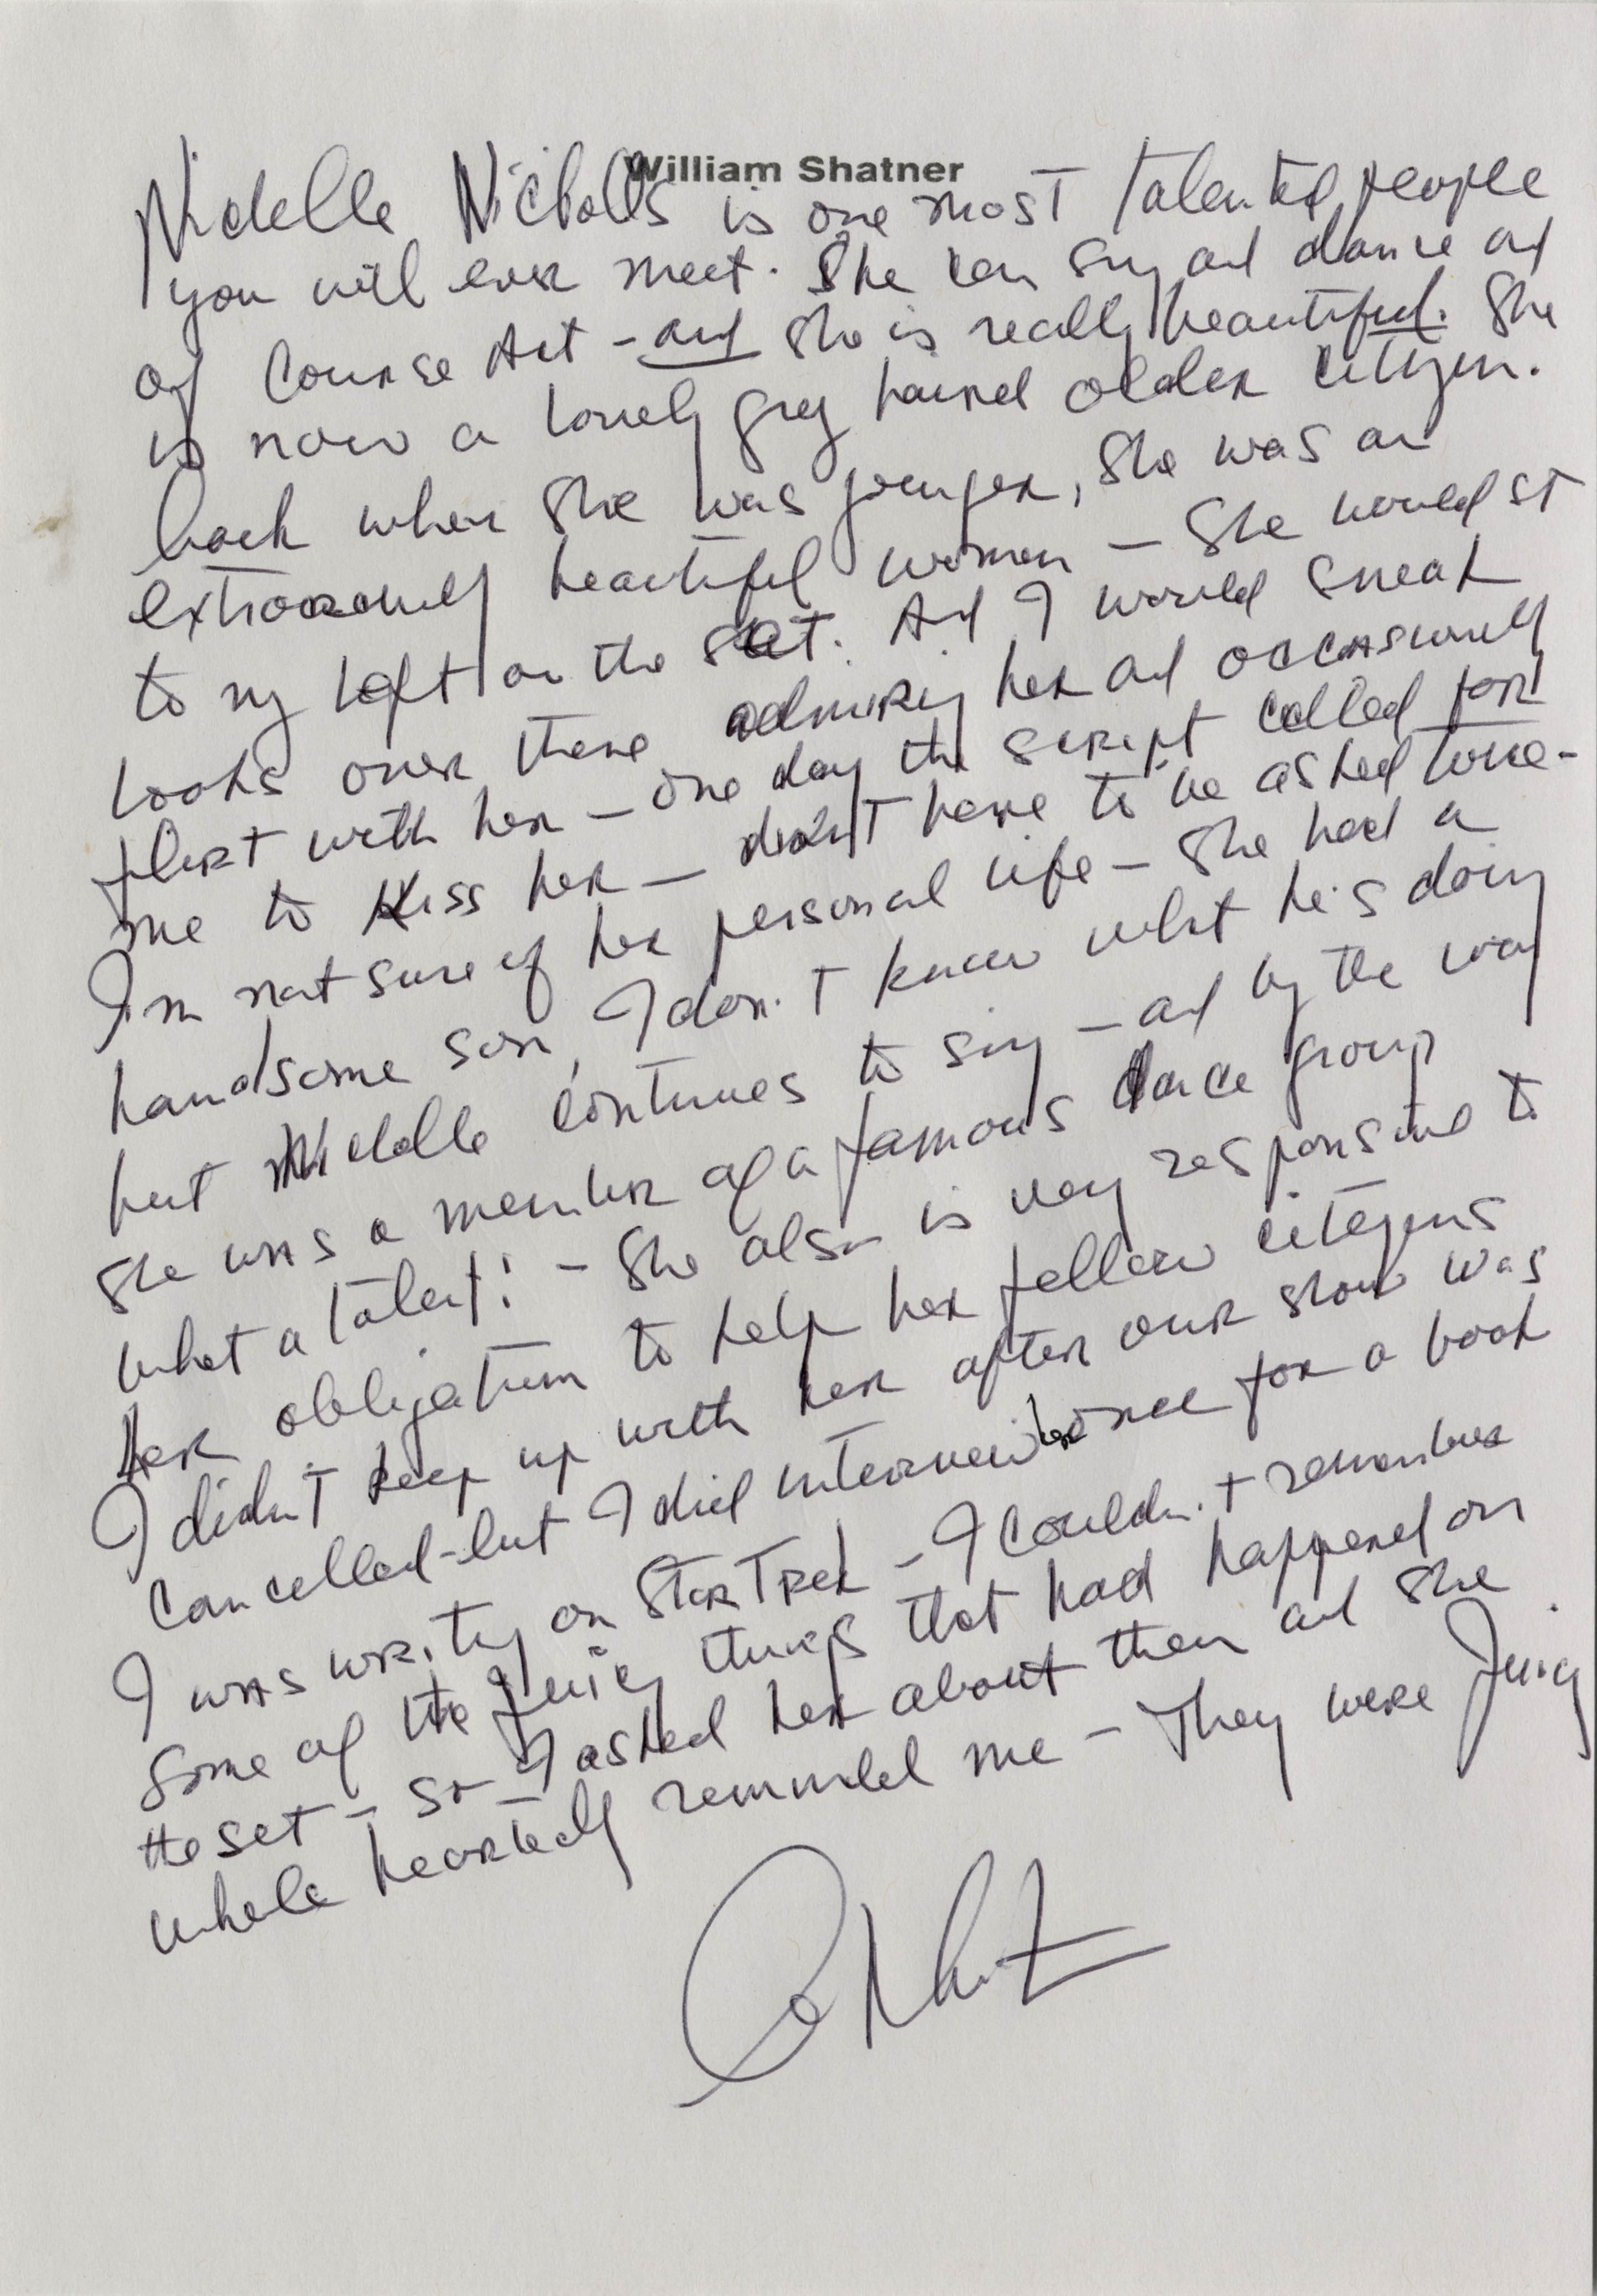 William Shatner
Nichelle Nicholls is one most talented people
you will ever meet. She can sing and dance and
of course Act - and she is really beautiful. She
is now a lovely grey haired older citizen.
back when she was younger, she was an
beautiful women - She would sit
to my left on the set. And I would sneak
looks over there admiring her and occasionally
flirt with her - one day the script called for
me to Kiss her - didn't have to be asked twice -
I'm not sure of her personal life - She had a
handsome son, I don't know what he's doing
but Nichelle continues to sing - and by the way
She was a member of a famous dance group
what a talent! - She also is very responsive to
her obligation to help her fellow citizens
I didn't keep up with her after our show was
cancelled - but I did interview her once for a book
I was writing on Star Trek - I couldn't remember
some of the juicy things that had happened on
the set - so I asked her about them and she
whole heartedly reminded me - They were Juicy